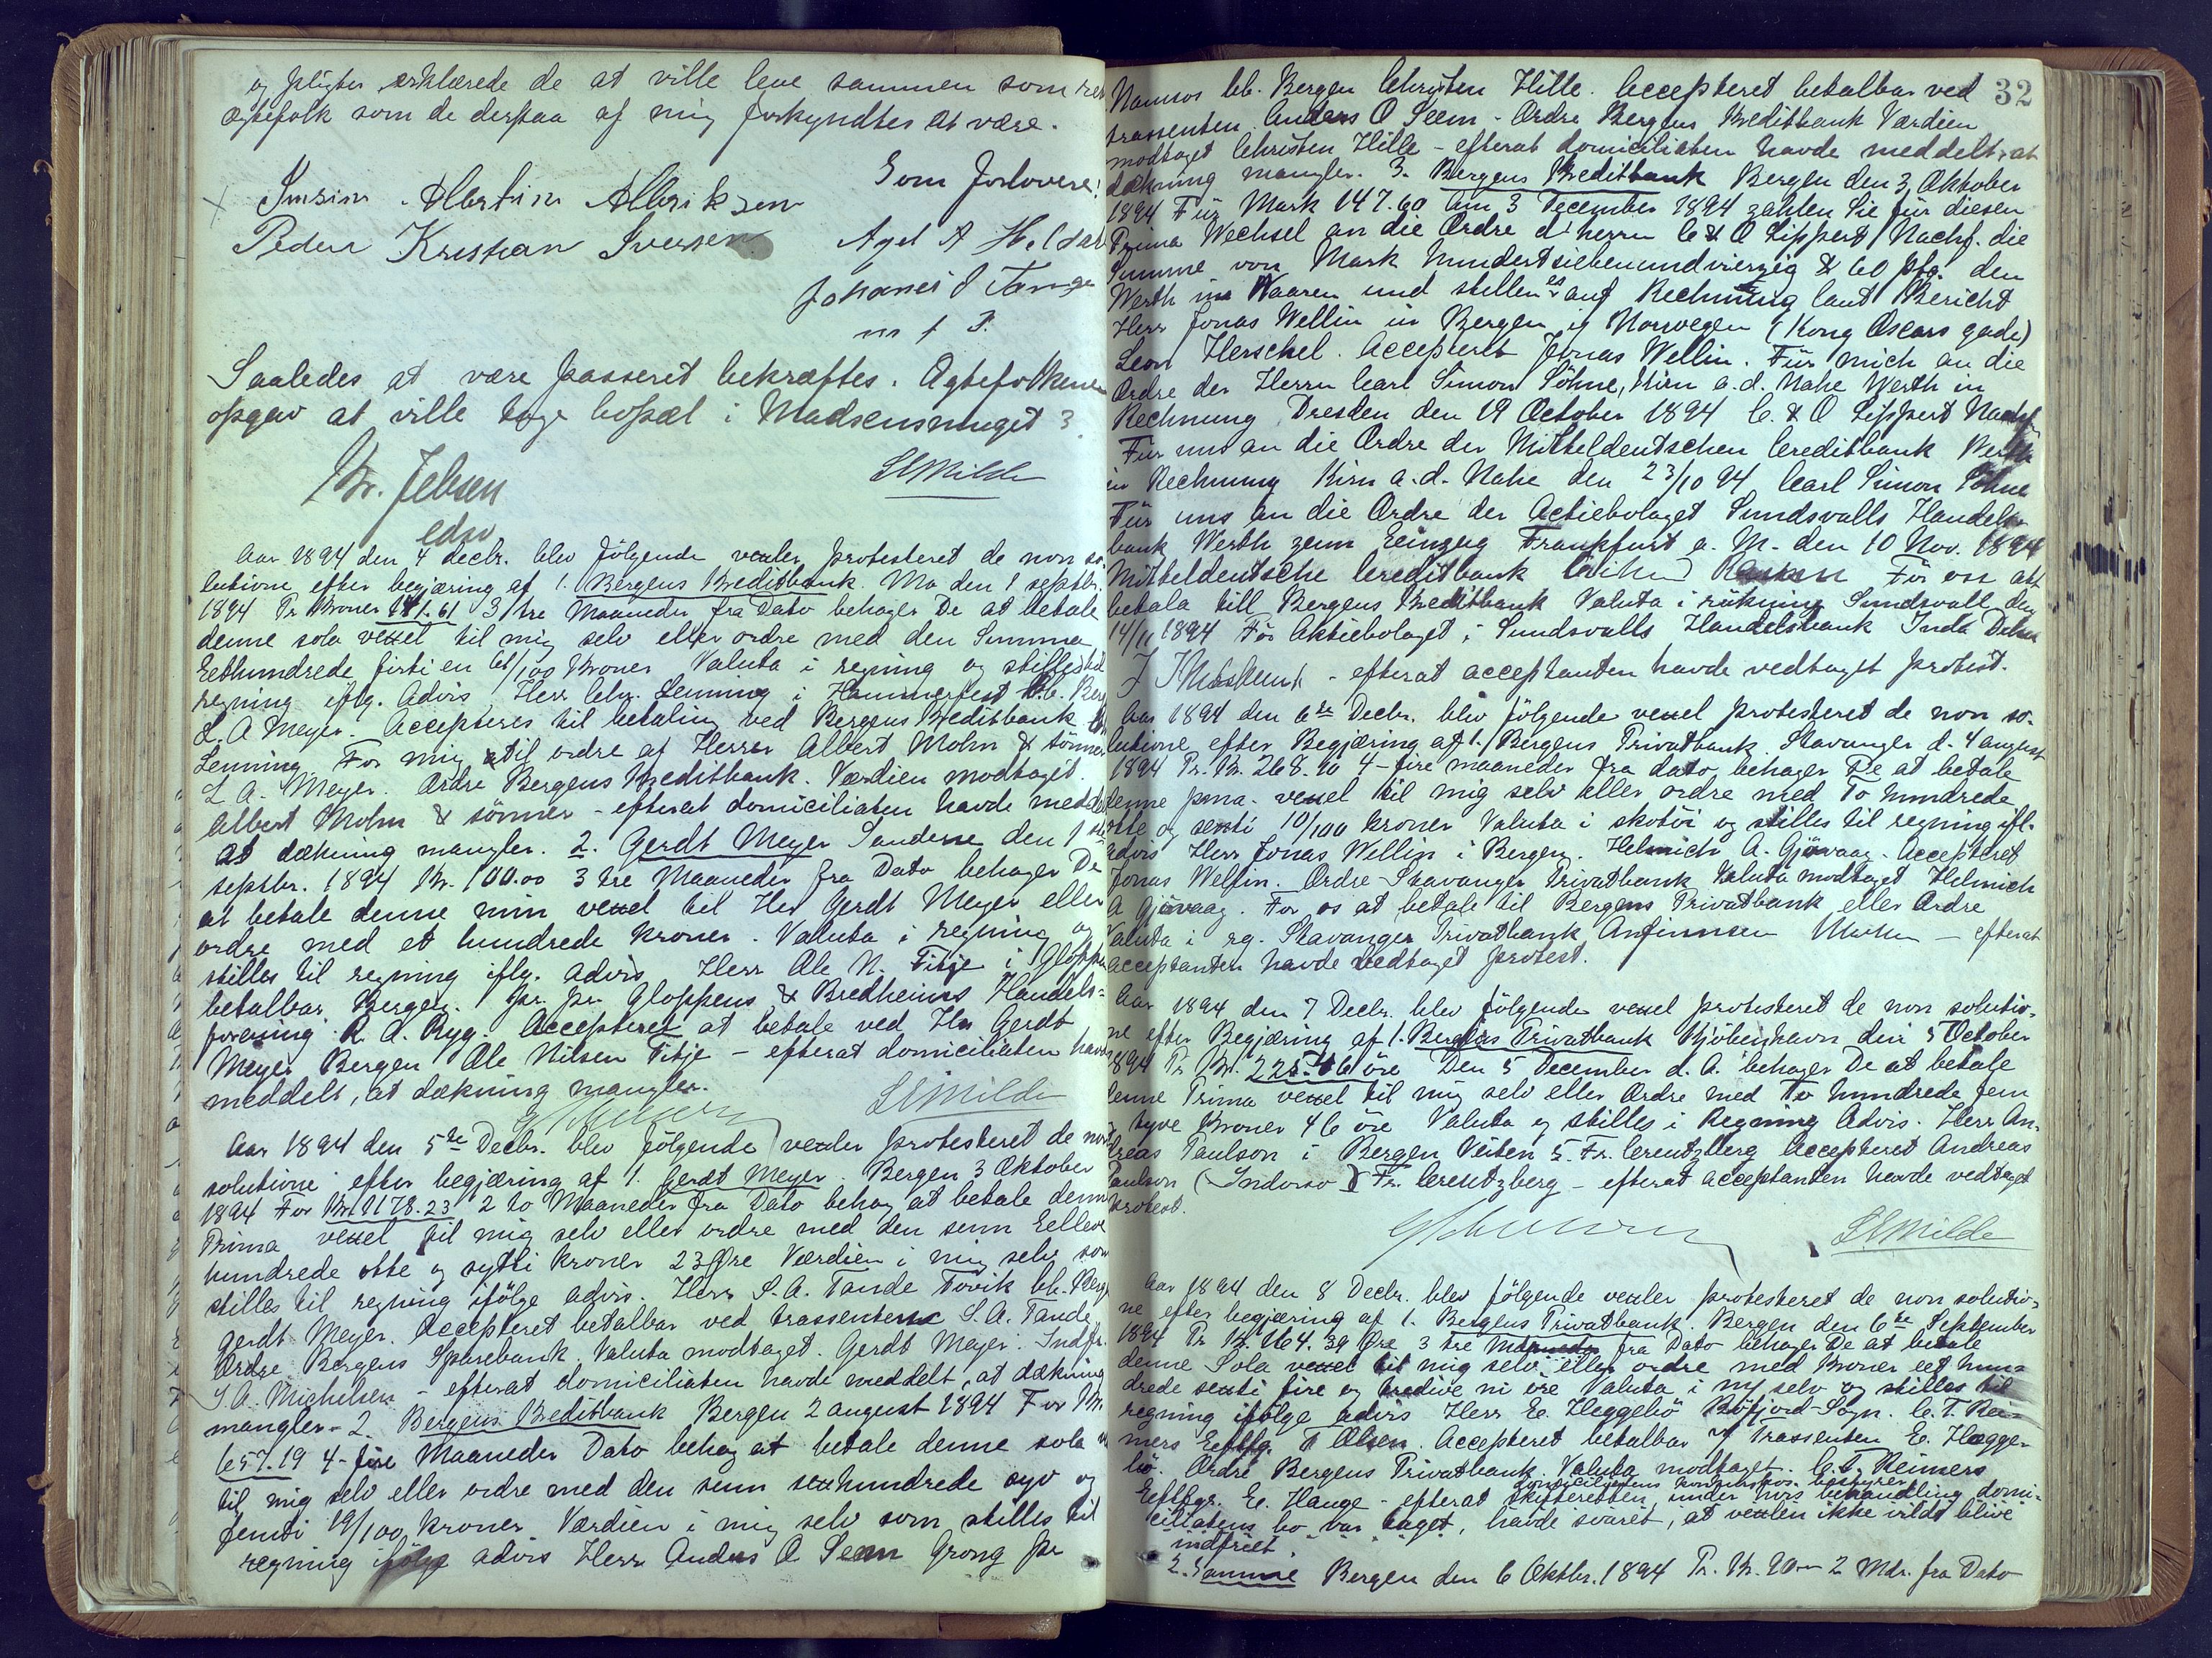 og pligter, erklærede de at ville leve sammen som ret
ægtefolk som de derpaa af mig forkyndtes at være.
Som forlovere:
Martin Albriksen
Peder Kristian Iversen
Axel A Heldal
Johanes J Tange
m f P.
Saaledes at være passeret bekræftes. Ægtefolkene
opgav at ville tage bopæl i Madsensmuget 3.
Kr. Jebsen
edsv
SEMilde
Aar 1894 den 4 decbr. blev følgende vexler protesteret de non so-
lutione efter begjæring af 1. Bergens Kreditbank. Mo den 1 septbr.
1894 Pr Kroner 141.61 3/tre Maaneder fra Dato behager De at betale
denne sola vexel til mig selv eller ordre med den Summa
Eethundrede firti en 61/100 Kroner Valuta i regning og stilles til
regning iflg. Advis Herr Chr. Lenning i Hammerfest bb. Berg
L. A Meyer. Accepteres til betaling ved Bergens Kreditbank Chr
Lenning For mig til ordre af Herrer Albert Mohn & sönner
L A. Meyer. Ordre Bergens Kreditbank. Værdien modtaget.
Albert Mohn & sönner - efterat domiciliaten havde meddelt
at dækning mangler. 2. Gerdt Meyer Sandene den 1ste
septbr. 1894 Kr. 100.00 3 tre Maaneder fra Dato behager De
at betale denne min vexel til Her Gerdt Meyer eller
ordre med et hundrede kroner. Valuta i regning og
stilles til regning iflg. advis Herr Ole N. Fitje i Gloppen
betalbar Bergen. pr. pr Gloppens & Bredheims Handels-
forening R. A. Ryg. Accepteret at betale ved Hr Gerdt
Meyer Bergen Ole Nilsen Fitje - efterat domiciliaten havde
meddelt, at dækning mangler.
SEMilde
Aar 1894 den 5te Decbr. blev følgende vexler protesteret de non
solutione efter begjæring af 1. Gerdt Meyer. Bergen 3 Oktober
1894 For Kr. 1178.23 2 to Maaneder fra Dato behag at betale denne
Prima vexel til mig selv eller ordre med den sum Elleve
hundrede otte og sytti kroner 23 Øre Værdien i mig selv som
stilles til regning ifölge advis. Herr S. A. Tande Torvik bb. Berg
Gerdt Meyer. Accepteret betalbar ved trassenten S. A. Tande
Ordre Bergens Sparebank. Valuta modtaget. Gerdt Meyer. Indfr.
J. A. Michelsen - efterat domiciliaten havde meddelt, at dækning
mangler - 2. Bergens Kreditbank Bergen 2 august 1894 For Kr.
657.19 4-fire Maaneder Dato behag at betale denne sola
til mig selv eller ordre med den sum sexhundrede syv og
femti 19/100 kroner Værdien i mig selv som stilles til
regning ifölge advis Herr Anders O Seem Grong pr
32
Namsos bb. Bergen Christen Hille. Accepteret betalbar ved
trassenten Anders O Seem - Ordre Bergens Kreditbank Værdien
modtaget Christen Hille - efterat domiciliaten havde meddelt, at
dækning mangler. 3. Bergens Kreditbank Bergen den 3 Oktober
1894 Für Mark 147.60 Am 3 December 1894 zahlen Sie für diesen
Prima Wechsel an die Ordre d' herrn C & O Lippert Nachf. die
Summe von Mark hundertsiebenundvierzig & 60 pfg. den
Werth in Waaren und stellen es auf Rechnung laut Bericht
Herr Jonas Wellin in Bergen ig Norwegen (Kong Oscars gade)
Leon Herschel. Accepteret Jonas Wellin. Für mich an die
Ordre der Herrn Carl Simon Söhne, Kirn a.d. Nahe Werth in
Rechnung Dresden den 19 October 1894 C. & O Lippert Nachf
Für uns an die Ordre der Mitteldeutschen Creditbank Werth
in Rechnung Kirn a.d. Nahe den 23/10 94 Carl Simon Söhne
Für uns an die Ordre der Actiebolaget Sundsvalls Handels-
bank Werth zum Einzug Frankfurt a. M. den 10 Nov. 1894
Mitteldeutsche Creditbank För oss att
betala till Bergens Kreditbank Valuta i räkning Sundsvall den
14/11 1894 För Aktiebolaget i Sundsvalls Handelsbank
- efterat acceptanten havde vedtaget protest.
Aar 1894 den 6te Decbr. blev følgende vexel protesteret de non so-
lutione efter Begjæring af 1. Bergens Privatbank. Stavanger d. 4 august
1894 Pr. Kr. 268.10 4 - fire maaneder fra dato behager De at betale
denne prma. vexel til mig selv eller ordre med To hundrede
otte og sexti 10/100 kroner Valuta i skotöi og stilles til regning ifl.
advis Herr Jonas Wellin i Bergen. Helmich A. Gjövaag. Accepteret
Jonas Wellin. Ordre Stavanger Privatbank Valuta modtaget Helmich
A Gjövaag. For os at betale til Bergens Privatbank eller Ordre
Valuta i rg. Stavanger Privatbank Anfinnsen - efterat
acceptanten havde vedtaget protest.
Aar 1894 den 7 Decbr. blev følgende vexel protesteret de non solutio-
ne efter Begjæring af 1. Bergens Privatbank Kjöbenhavn den 5 October
1894 Pr Kr. 225.46 öre Den 5 December d. A. behager De at betale
denne Prima vexel til mig selv eller Ordre med To hundrede fem
& tyve Kroner 46 öre Valuta og stilles i Regning Advis. Herr An-
dreas Paulson i Bergen Veiten 5. Fr. Creutzberg Accepteret Andreas
Paulson (Indorso) Fr. Creutzberg - efterat acceptanten havde vedtaget
protest.
SEMilde
Aar 1894 den 8 Decbr. blev følgende vexler protesteret de non solutio-
ne efter begjæring af 1. Bergens Privatbank. Bergen den 6te September
1894 Pr Kr. 164.39 Øre 3 tre Maaneder fra Dato behager De at betale
denne Sola vexel til mig selv eller ordre med Kroner eet hun-
drede sexti fire og tredive ni öre Valuta i mig selv og stilles til
regning ifölge advis Herr E. Heggebö Böfjord-Sogn. C. T. Rei-
mers Eeftfg. T Olsen. Accepteret betalbar v/ trassenten E. Hegge-
bö. Ordre Bergens Privatbank. Valuta modtaget. C. T. Reimers
domiciliatens konkursbos bestyrer
Eeftfgr. E. Hauge - efterat skifteretten, under hvis behandling domi-
ciliatens bo var taget, havde svaret, at vexlen ikke vilde blive
indfriet.
2. Samme Bergen den 6 Oktbr. 1894 Pr. Kr. 90 - 2 Mdr. fra Dato